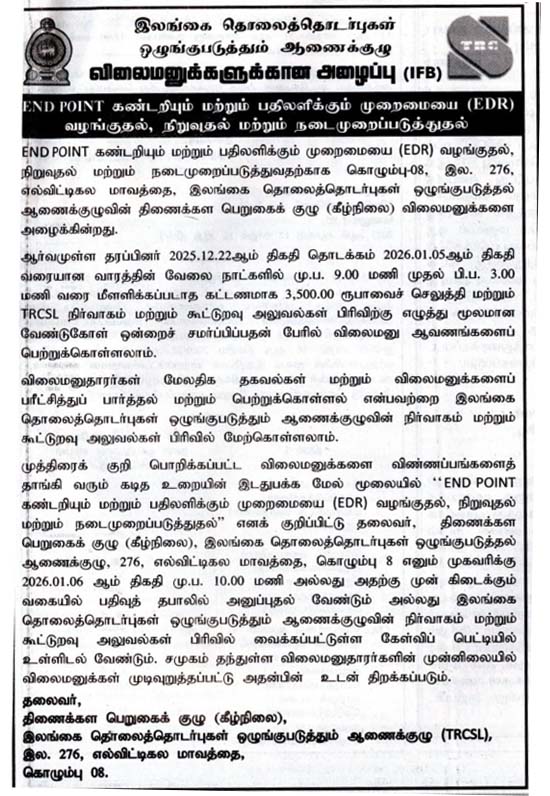 இலங்கை தொலைத்தொடர்புகள்
ஒழுங்குபடுத்தும் ஆணைக்குழு
விலைமனுக்களுக்கான அழைப்பு (IFB)
TRC
END POINT கண்டறியும் மற்றும் பதிலளிக்கும் முறைமையை (EDR)
வழங்குதல், நிறுவுதல் மற்றும் நடைமுறைப்படுத்துதல்
END POINT கண்டறியும் மற்றும் பதிலளிக்கும் முறைமையை (EDR) வழங்குதல்,
நிறுவுதல் மற்றும் நடைமுறைப்படுத்துவதற்காக கொழும்பு-08, இல. 276,
எல்விட்டிகல மாவத்தை, இலங்கை தொலைத்தொடர்புகள் ஒழுங்குபடுத்தல்
ஆணைக்குழுவின் திணைக்கள பெறுகைக் குழு (கீழ்நிலை) விலைமனுக்களை
அழைக்கின்றது.
ஆர்வமுள்ள தரப்பினர் 2025.12.22ஆம் திகதி தொடக்கம் 2026.01.05ஆம் திகதி
வரையான வாரத்தின் வேலை நாட்களில் மு.ப. 9.00 மணி முதல் பி.ப. 3.00
மணி வரை மீளளிக்கப்படாத கட்டணமாக 3,500.00 ரூபாவைச் செலுத்தி மற்றும்
TRCSL நிர்வாகம் மற்றும் கூட்டுறவு அலுவல்கள் பிரிவிற்கு எழுத்து மூலமான
வேண்டுகோள் ஒன்றைச் சமர்ப்பிப்பதன் பேரில் விலைமனு ஆவணங்களைப்
பெற்றுக்கொள்ளலாம்.
விலைமனுதாரர்கள் மேலதிக தகவல்கள் மற்றும் விலைமனுக்களைப்
பரீட்சித்துப் பார்த்தல் மற்றும் பெற்றுக்கொள்ளல் என்பவற்றை இலங்கை
தொலைத்தொடர்புகள் ஒழுங்குபடுத்தும் ஆணைக்குழுவின் நிர்வாகம் மற்றும்
கூட்டுறவு அலுவல்கள் பிரிவில் மேற்கொள்ளலாம்.
முத்திரைக் குறி பொறிக்கப்பட்ட விலைமனுக்களை விண்ணப்பங்களைத்
தாங்கி வரும் கடித உறையின் இடதுபக்க மேல் மூலையில் "END POINT
கண்டறியும் மற்றும் பதிலளிக்கும் முறைமையை (EDR) வழங்குதல், நிறுவுதல்
மற்றும் நடைமுறைப்படுத்துதல்" எனக் குறிப்பிட்டு தலைவர், திணைக்கள
பெறுகைக் குழு (கீழ்நிலை), இலங்கை தொலைத்தொடர்புகள் ஒழுங்குபடுத்தல்
ஆணைக்குழு, 276, எல்விட்டிகல மாவத்தை, கொழும்பு 8 எனும் முகவரிக்கு
2026.01.06 ஆம் திகதி மு.ப. 10.00 மணி அல்லது அதற்கு முன் கிடைக்கும்
வகையில் பதிவுத் தபாலில் அனுப்புதல் வேண்டும் அல்லது இலங்கை
தொலைத்தொடர்புகள் ஒழுங்குபடுத்தும் ஆணைக்குழுவின் நிர்வாகம் மற்றும்
கூட்டுறவு அலுவல்கள் பிரிவில் வைக்கப்பட்டுள்ள கேள்விப் பெட்டியில்
உள்ளிடல் வேண்டும். சமுகம் தந்துள்ள விலைமனுதாரர்களின் முன்னிலையில்
விலைமனுக்கள் முடிவுறுத்தப்பட்டு அதன்பின் உடன் திறக்கப்படும்.
தலைவர்,
திணைக்கள பெறுகைக் குழு (கீழ்நிலை),
இலங்கை தொலைத்தொடர்புகள் ஒழுங்குபடுத்தும் ஆணைக்குழு (TRCSL),
இல. 276, எல்விட்டிகல மாவத்தை,
கொழும்பு 08.